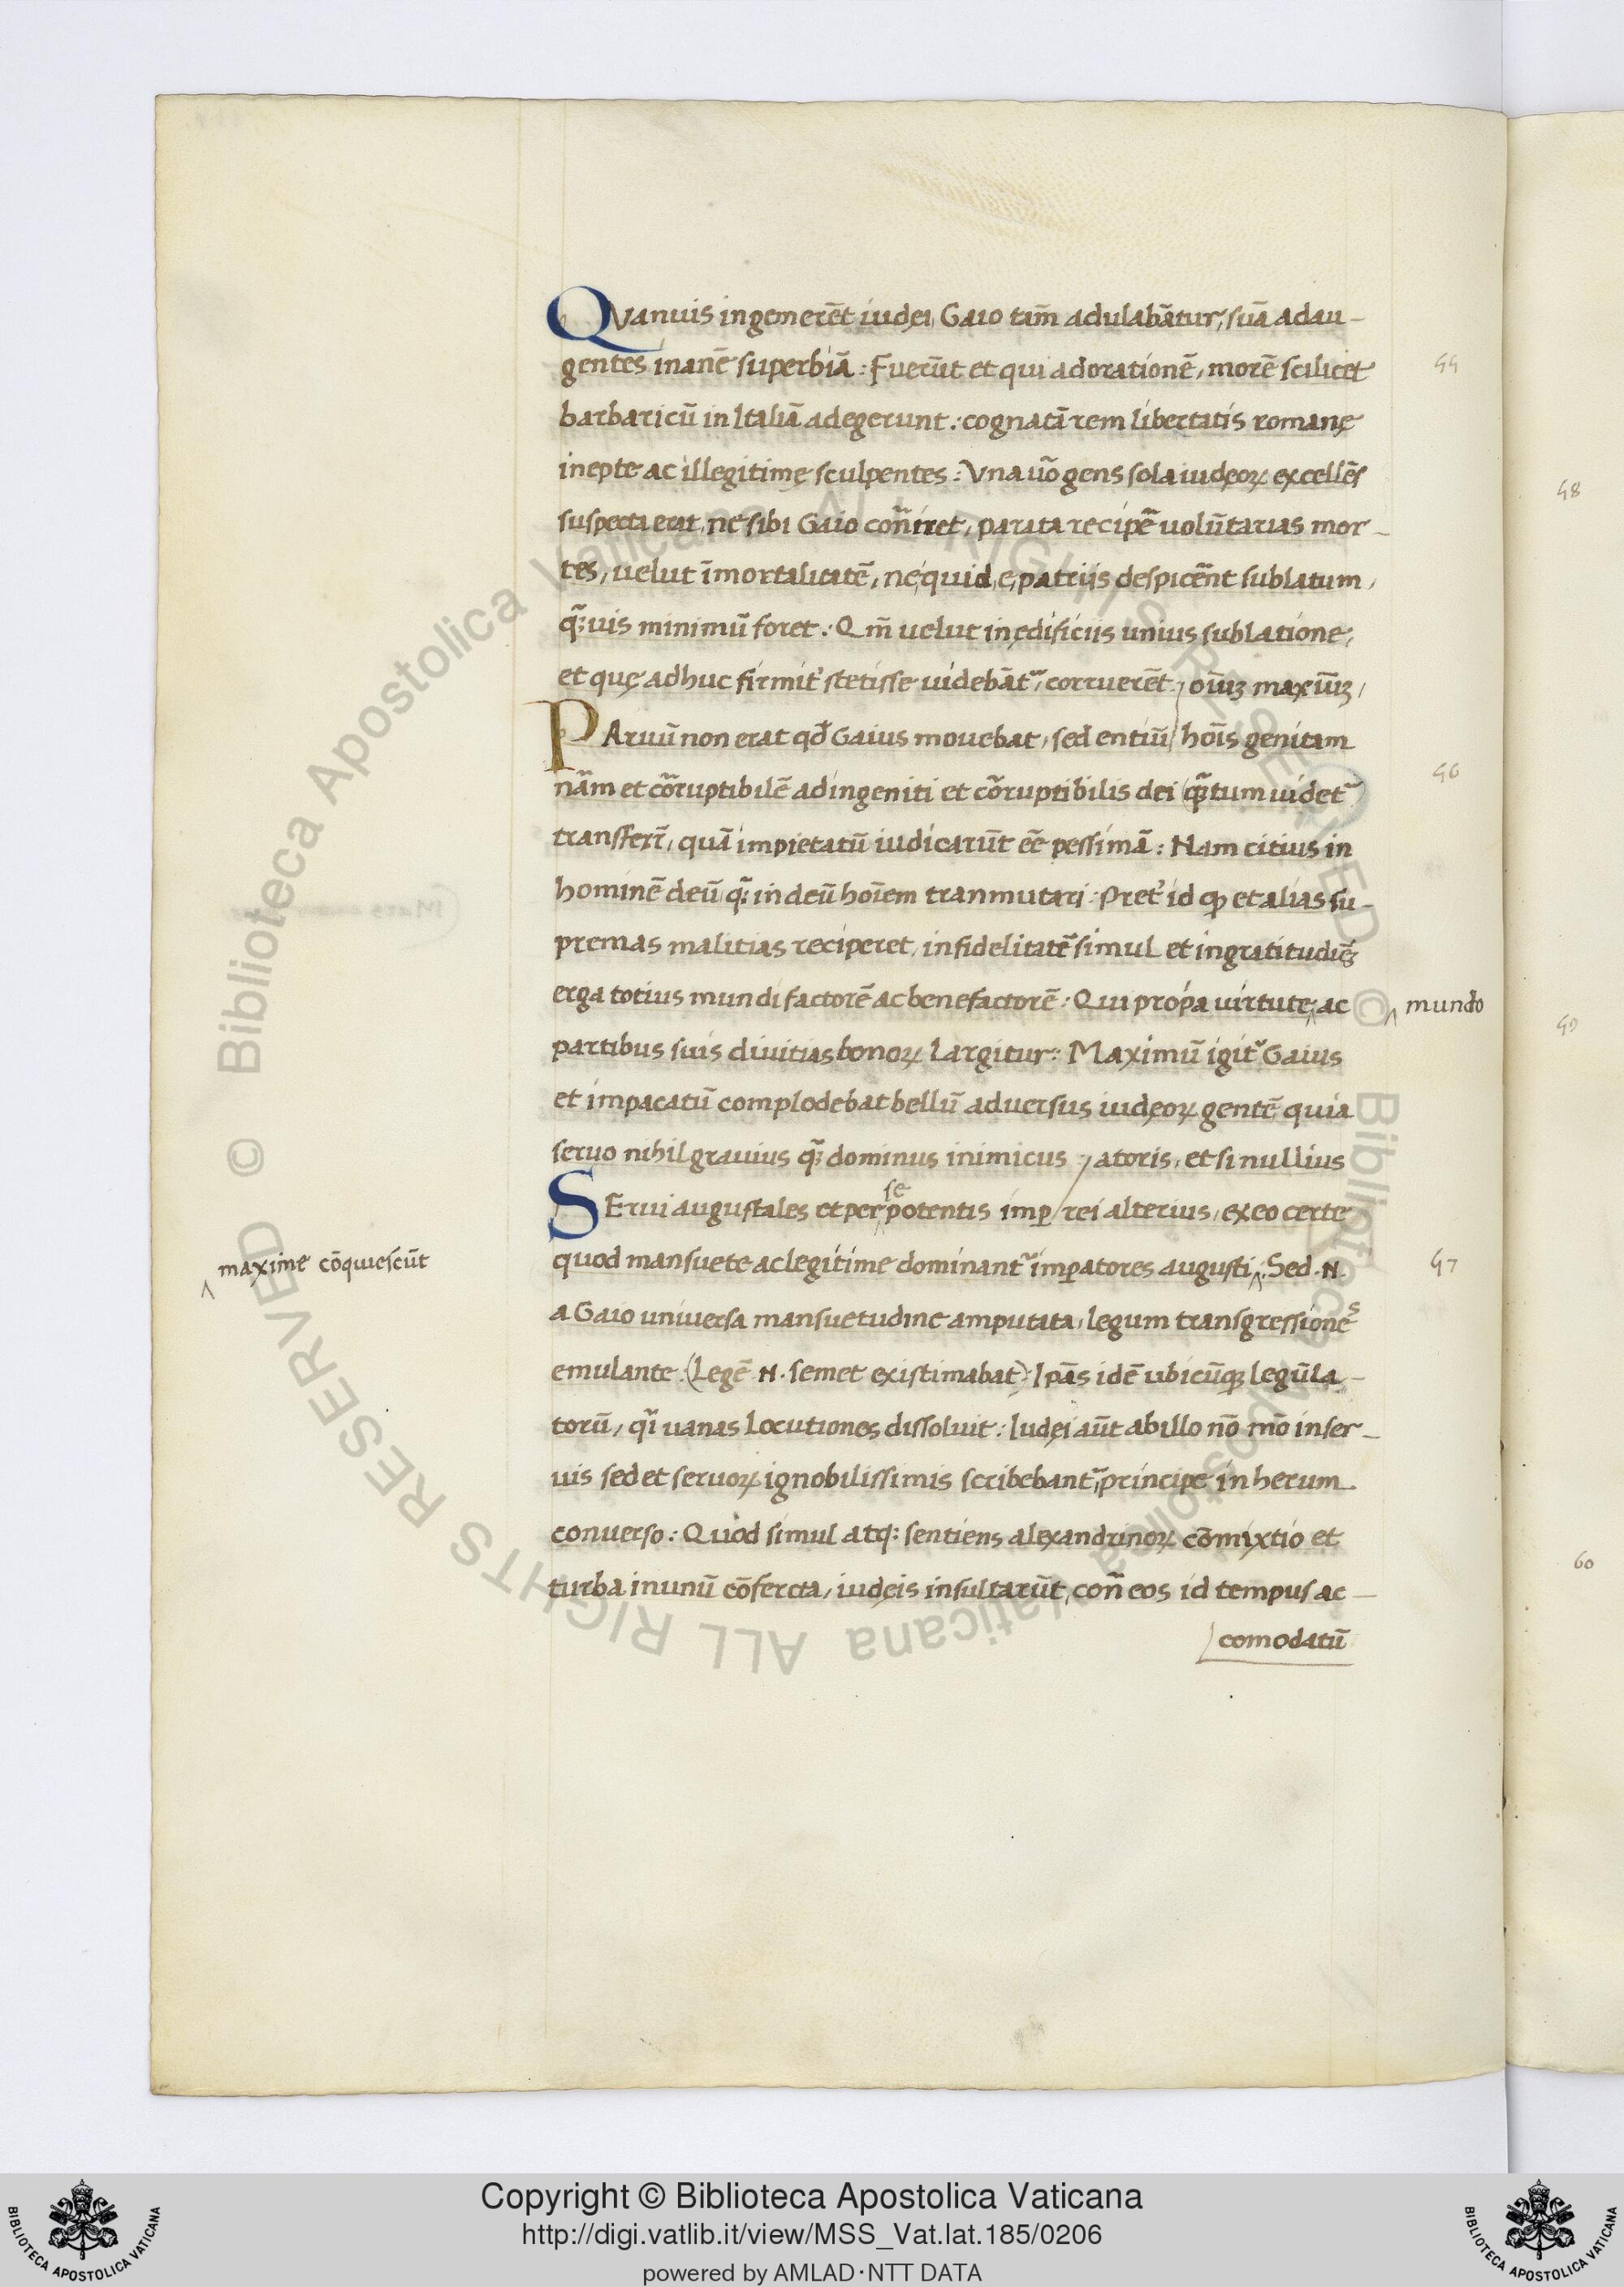 QVanuis ingemerēt iudęi, Gaio tam̄ adulabātur, suā adau-
gentes inanē superbiā: Fuerūt et qui adorationē, morē scilicet
barbaricū in Italiā adegerunt: cognatā rem libertatis romanę
inepte ac illegitimę sculpentes: Vna uo᷃ gens sola iudęoꝝ excellēs
suspecta erat, ne sibi Gaio con̄iret, parata recipe᷃ uolūtarias mor-
tes, uelut īmortalitatē, ne quid, e, patriis despice᷃nt sublatum,
qꝫ᷃uis minimū foret: Qm̄ uelut in ędificiis unius sublatione,
et quę adhuc firmit᾽ stetisse uidebāt᷃, corruerēt: oīuꝫ maxīuꝫ,
PAruū non erat qđ Gaius mouebat, sed entiū hoīs genitam
na᷃m et co᷃ruptibilē ad ingeniti et co᷃ruptibilis dei (qᷓtum uidet᷃)
transferr̄, quā impietatū iudicarūt eē pessimā: Nam citius in
hominē deū qꝫ᷃ in deū hoīem tranmutari: Pret᾽ id qꝫ et alias su-
premas malitias reciperet, infidelitatē simul et ingratitudīēs
erga totius mundi factorē ac benefactorē: Qui propa uirtute‸ ac
‸ mundo
partibus suis diuitias bonoꝝ largitur: Maximū igit᷃ Gaius
et impacatū complodebat bellū aduersus iudęoꝝ gentē, quia
seruo nihil grauius qꝫ᷃ dominus inimicus atoris, et si nullius
SErui augustales et per se potentis imꝑ rei alterius, ex eo certe
quod mansuete ac legitime dominant᷃ imꝑatores augusti‸: Sed .N.
‸ maxime cōquiescūt
a Gaio uniuersa mansuetudine amputata, legum transgressiones
emulante: (Legē .N. semet existimabat) Ipās idē ubicūqꝫ legūla-
torū, qͥ uanas locutiones dissoluit: Iudęi aūt ab illo nō mō in ser-
uis sed et seruoꝝ ignobilissimis scribebant᷃, principe in herum
conuerso: Quod simul atqꝫ sentiens alexandrinoꝝ cōmixtio et
turba in unū cōfercta, iudęis insultarūt, con̄ eos id tempus ac-
comodatū
44
46
47
48
49
60
Copyright © Biblioteca Apostolica Vaticana
http://digi.vatlib.it/view/MSS_Vat.lat.185/0206
powered by AMLAD·NTT DATA
BIBLIOTECA APOSTOLICA VATICANA
BIBLIOTECA APOSTOLICA VATICANA
© Biblioteca Apostolica Vaticana ALL RIGHTS RESERVED
© Biblioteca Apostolica Vaticana ALL RIGHTS RESERVED